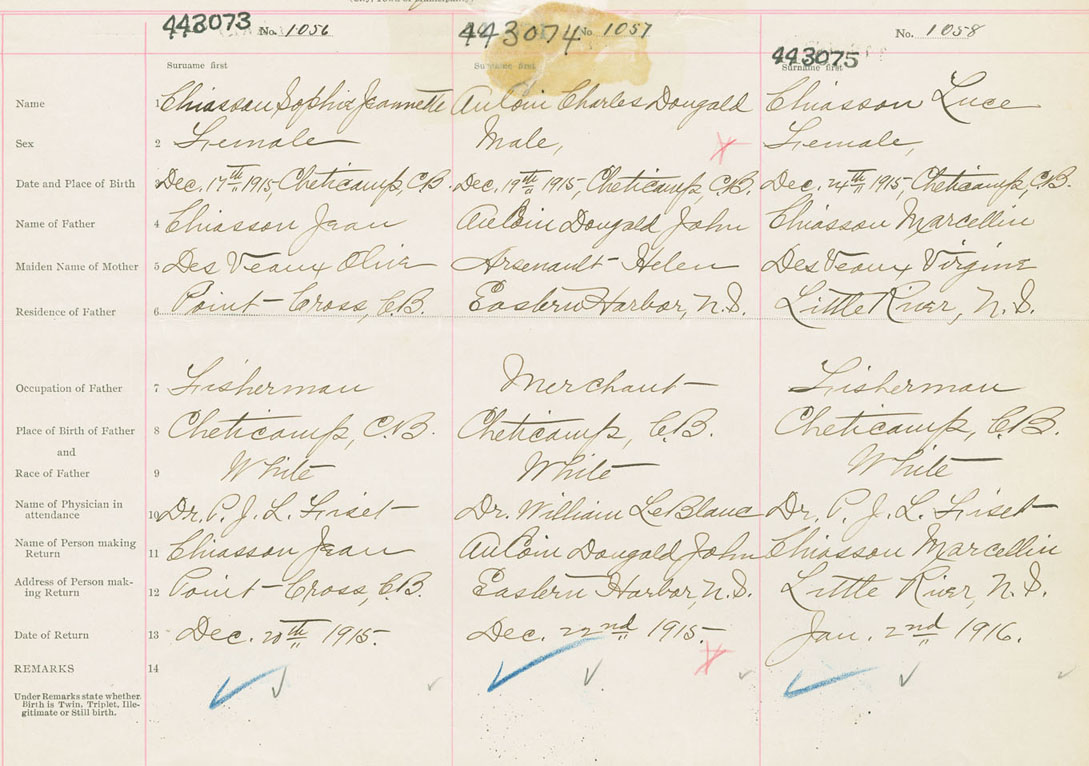 443073 No. 1056
443074 No 1057
443075 No. 1058
Surname first Surname first Surname first
Name 1 Chiasson Sophie Jeannette AuCoin Charles Dougald Chiasson Luce
Sex 2 Female Male, Female,
Date and Place of Birth 3 Dec. 17th 1915, Cheticamp, C.B. Dec. 19th 1915, Cheticamp, C.B. Dec. 24th 1915, Cheticamp, C.B.
Name of Father 4 Chiasson Jean AuCoin Dougald John Chiasson Marcellin
Maiden Name of Mother 5 Des Veaux Olive Arsenault Helen DesVeaux Virginie
Residence of Father 6 Point Cross, C.B. Eastern Harbor, N.S. Little River, N.S.
Occupation of Father 7 Fisherman Merchant Fisherman
Place of Birth of Father 8 Cheticamp, C.B. Cheticamp, C.B. Cheticamp, C.B.
and
Race of Father 9 White White White
Name of Physician in
attendance 10 Dr. P. J. L. Fiset Dr. William LeBlanc Dr. P. J. L. Fiset
Name of Person making
Return 11 Chiasson Jean AuCoin Dougald John Chiasson Marcellin
Address of Person mak-
ing Return 12 Point Cross, C.B. Eastern Harbor, N.S. Little River, N.S.
Date of Return 13 Dec. 20th 1915. Dec. 22nd 1915. Jan. 2nd 1916.
REMARKS 14
Under Remarks state whether
Birth is Twin, Triplet, Ille-
gitimate or Still birth.